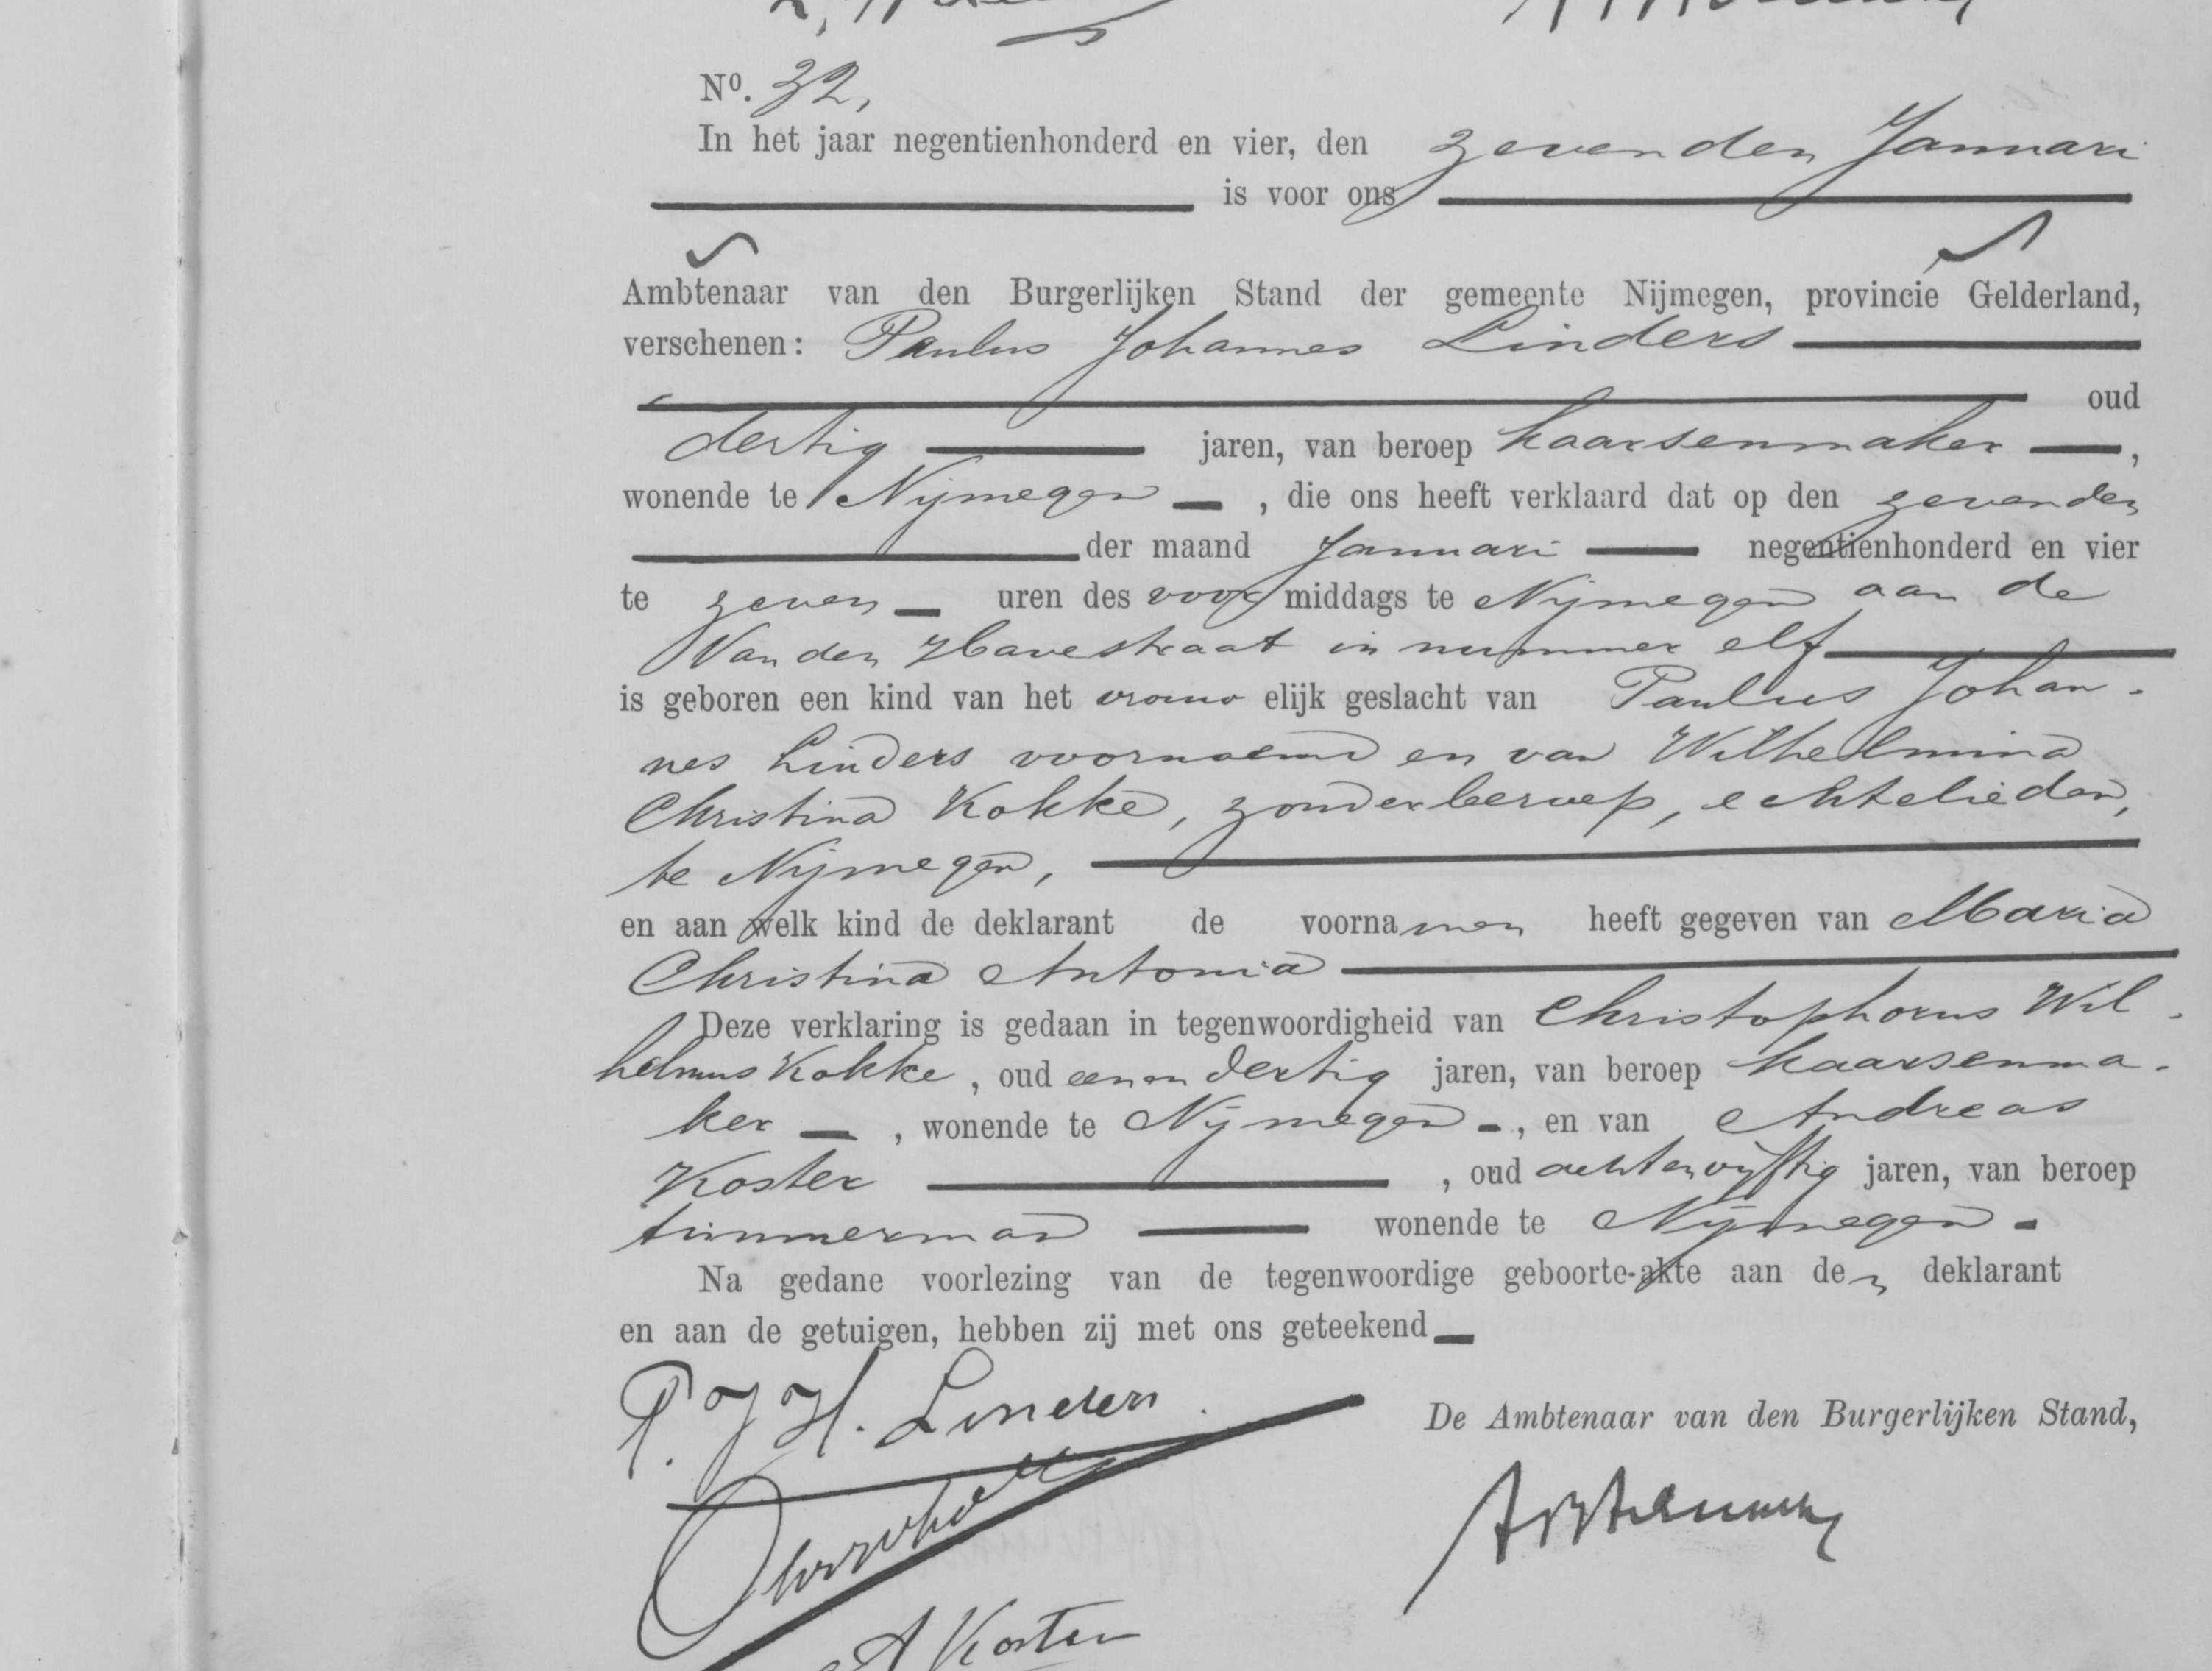 No. 32,
In het jaar negentienhonderd en vier, den zevenden Januari
is voor ons
Ambtenaar van den Burgerlijken Stand der gemeente Nijmegen, provincie Gelderland,
verschenen: Paulus Johannes Linders
oud
dertig jaren, van beroep kaarsenmaker ,
wonende te Nijmegen , die ons heeft verklaard dat op den zevenden
der maand Januari negentienhonderd en vier
te zeven uren des voormiddags te Nijmegen aan de
Van den Havestraat in nummer elf
is geboren een kind van het vrouwelijk geslacht van Paulus Johan-
nes Linders voornoemd en van Wilhelmina
Christina Kokke, zonder beroep, echtelieden,
te Nijmegen,
en aan welk kind de deklarant de voornamen heeft gegeven van Maria
Christina Antonia
Deze verklaring is gedaan in tegenwoordigheid van Christophorus Wil-
helmus Kokke, oud eenendertig jaren, van beroep kaarsenma-
ker , wonende te Nijmegen , en van Andreas
Koster , oud achtenvijftig jaren, van beroep
timmerman wonende te Nijmegen
Na gedane voorlezing van de tegenwoordige geboorte-akte aan den deklarant
en aan de getuigen, hebben zij met ons geteekend
P. J H. Linders
De Ambtenaar van den Burgerlijken Stand,
A Koster